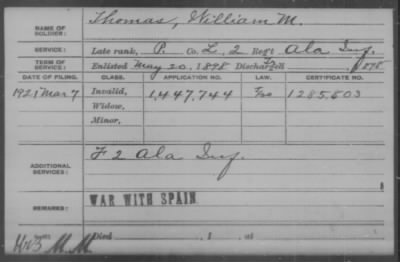 NAME OF SOLDIER: Thomas, William M.
SERVICE: Late rank, P. Co. L, 2 Reg't Ala Inf.
TERM OF SERVICE: Enlisted May 20, 1898 Discharged , 1898
DATE OF FILING. CLASS. APPLICATION NO. LAW. CERTIFICATE NO.
1921 Mar 7 Invalid, 1,447,744 1285,503
Widow,
Minor,
ADDITIONAL SERVICES: F 2 Ala Inf.
REMARKS: WAR WITH SPAIN
Died , 1 , at
M.M.